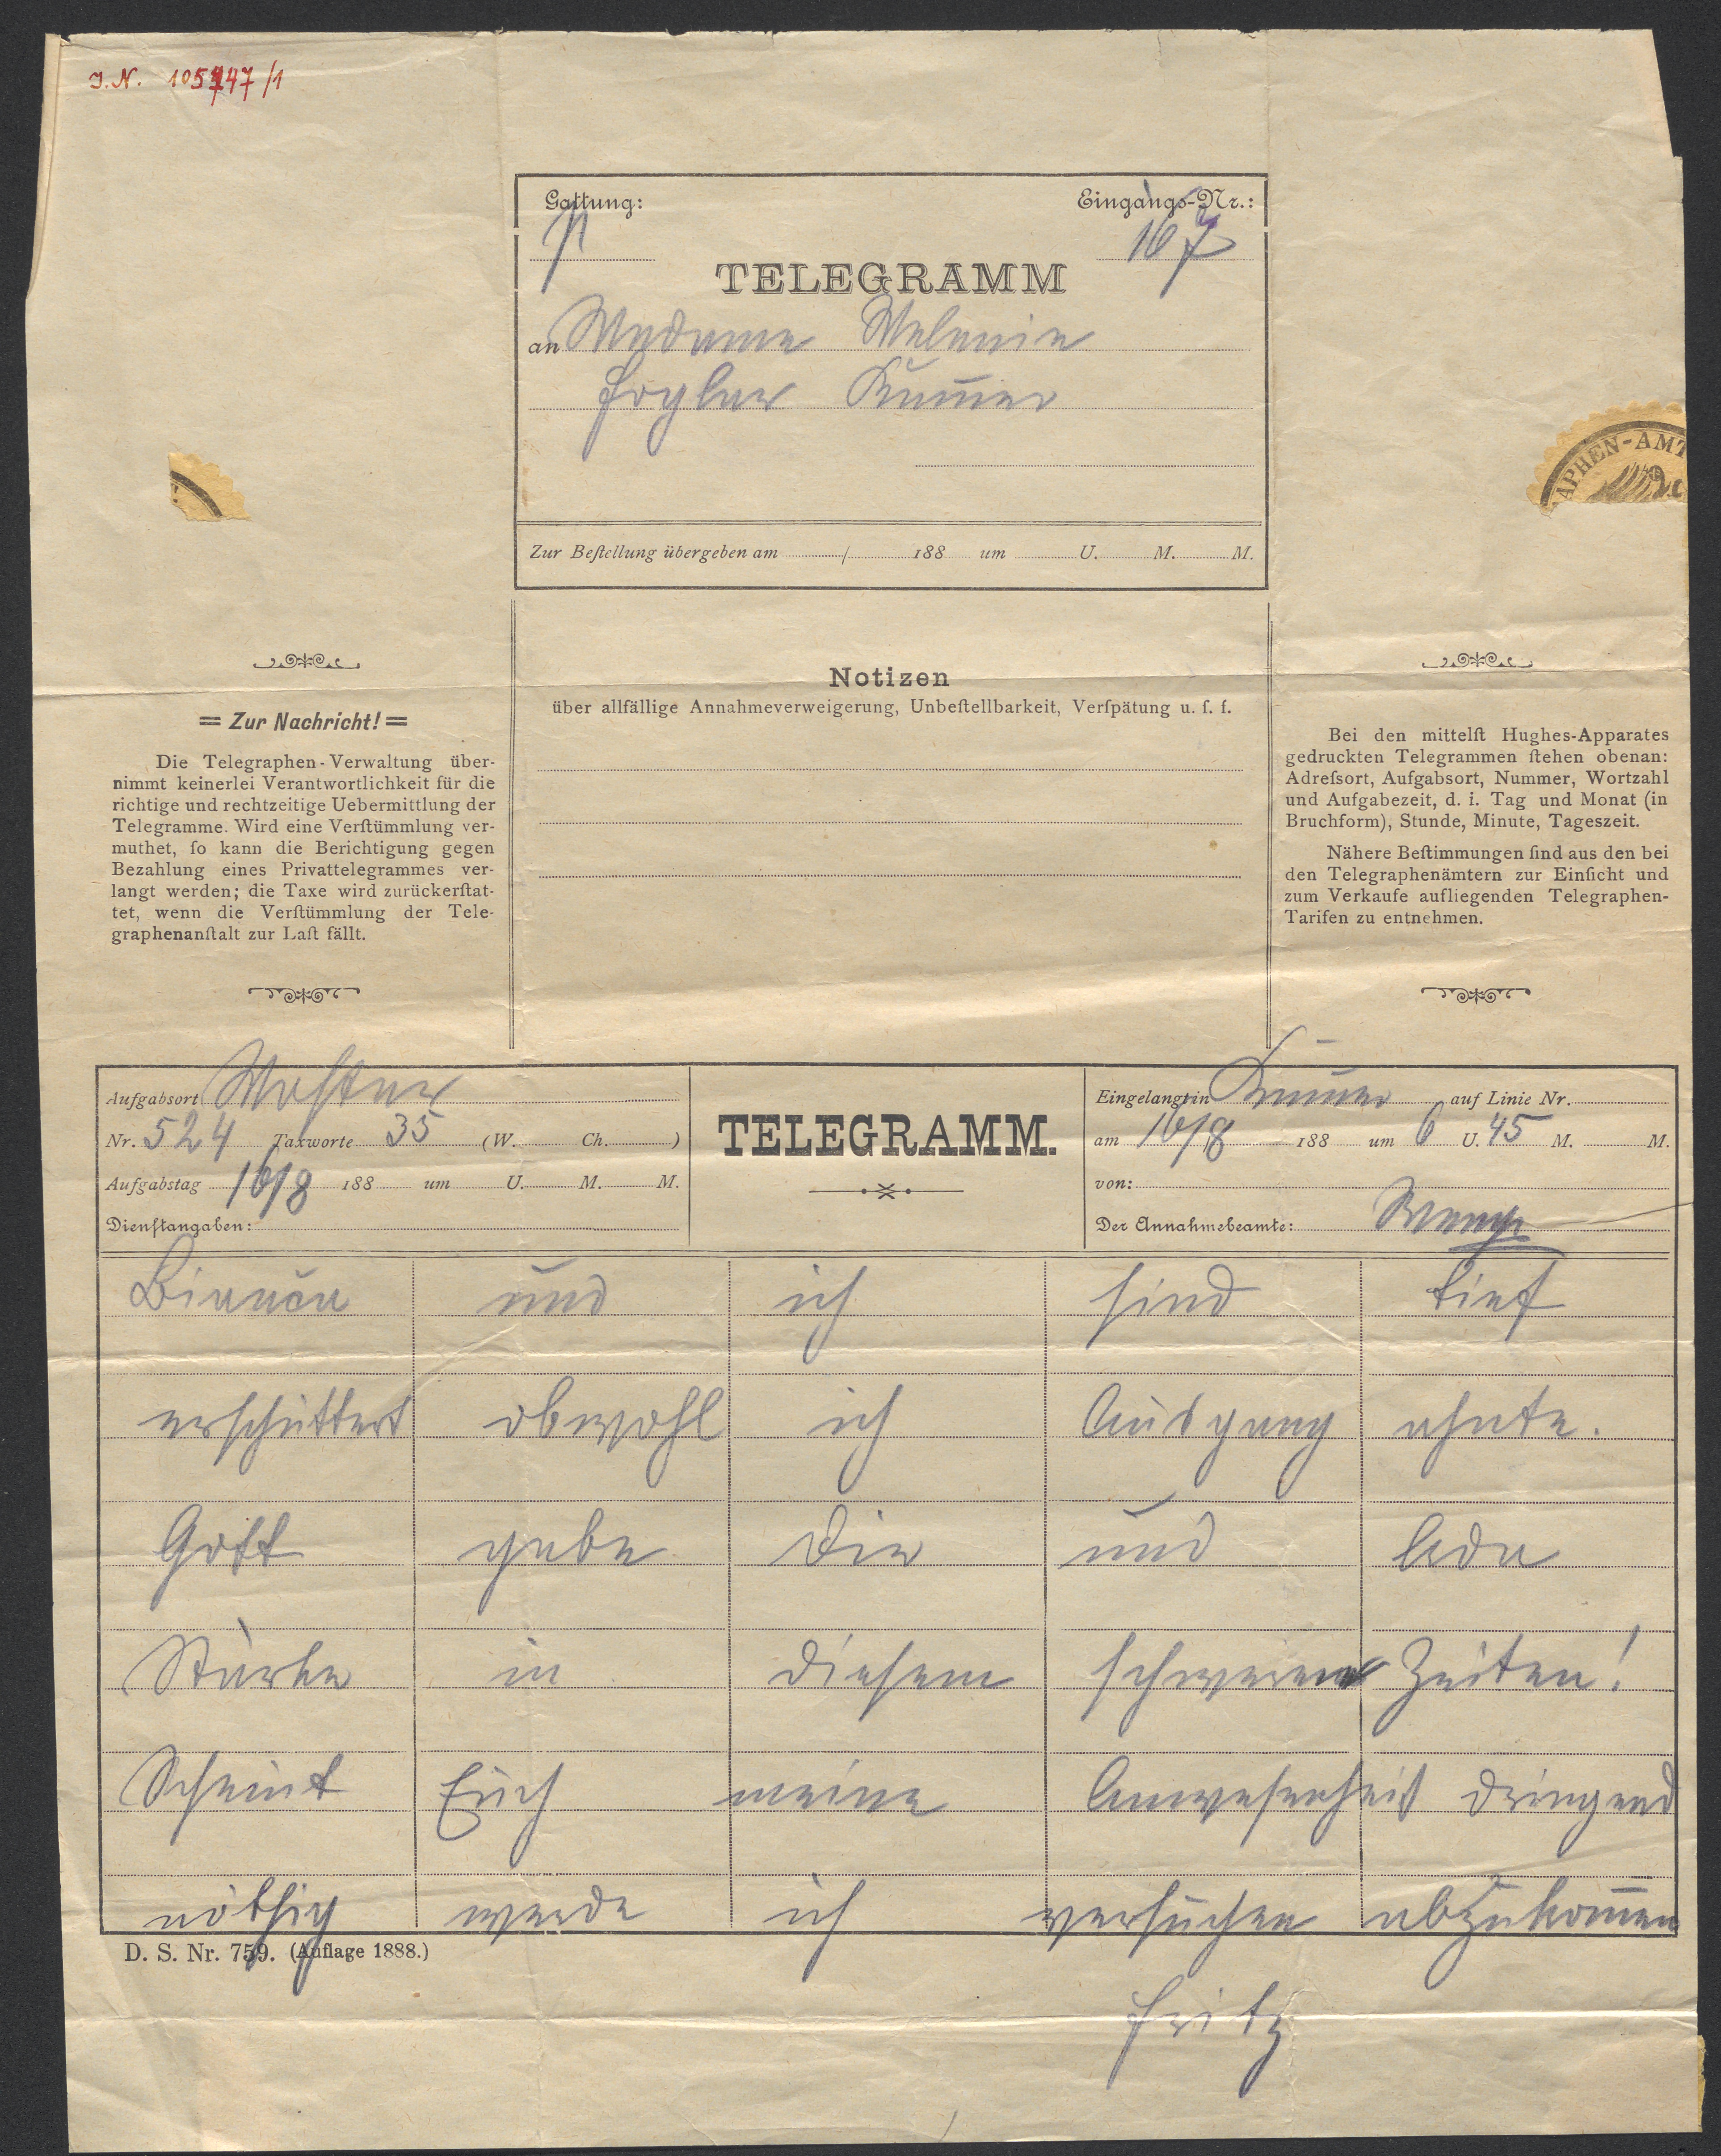 I. N. 105747/1
Gattung: Eingangs-Nr.:
p 167
TELEGRAMM
an Madame Melanie
Foglar Kum̅er
APHEN-AMT
Zur Beſtellung übergeben am / 188 um U. M. M.
= Zur Nachricht! =
Die Telegraphen-Verwaltung über-
nimmt keinerlei Verantwortlichkeit für die
richtige und rechtzeitige Uebermittlung der
Telegramme. Wird eine Verſtümmlung ver-
muthet, ſo kann die Berichtigung gegen
Bezahlung eines Privattelegrammes ver-
langt werden; die Taxe wird zurückerſtat-
tet, wenn die Verſtümmlung der Tele-
graphenanſtalt zur Laſt fällt.
Notizen
über allfällige Annahmeverweigerung, Unbeſtellbarkeit, Verſpätung u. ſ. f.
Bei den mittelſt Hughes-Apparates
gedruckten Telegrammen ſtehen obenan:
Adreſsort, Aufgabsort, Nummer, Wortzahl
und Aufgabezeit, d. i. Tag und Monat (in
Bruchform), Stunde, Minute, Tageszeit.
Nähere Beſtimmungen ſind aus den bei
den Telegraphenämtern zur Einſicht und
zum Verkaufe aufliegenden Telegraphen-
Tarifen zu entnehmen.
Aufgabsort Mostar
Nr. 524 Taxworte 35 (W. Ch. )
Aufgabstag 16/8 188 um U. M. M.
Dienſtangaben:
TELEGRAMM.
Eingelangt in Kum̅er auf Linie Nr.
am 16/8 188 um 6 U. 45 M. M.
von:
Der Annahmebeamte:
Bianca und ich sind tief
erschüttert obwohl ich Ausgang ahnte.
Gott gebe Dir und Ada
Stärke in diesem schweren Zeiten!
Scheint Euch meine Anwesenheit dringend
nöthig werde ich versuchen abzukom̅en
D. S. Nr. 759. (Auflage 1888.)
Fritz